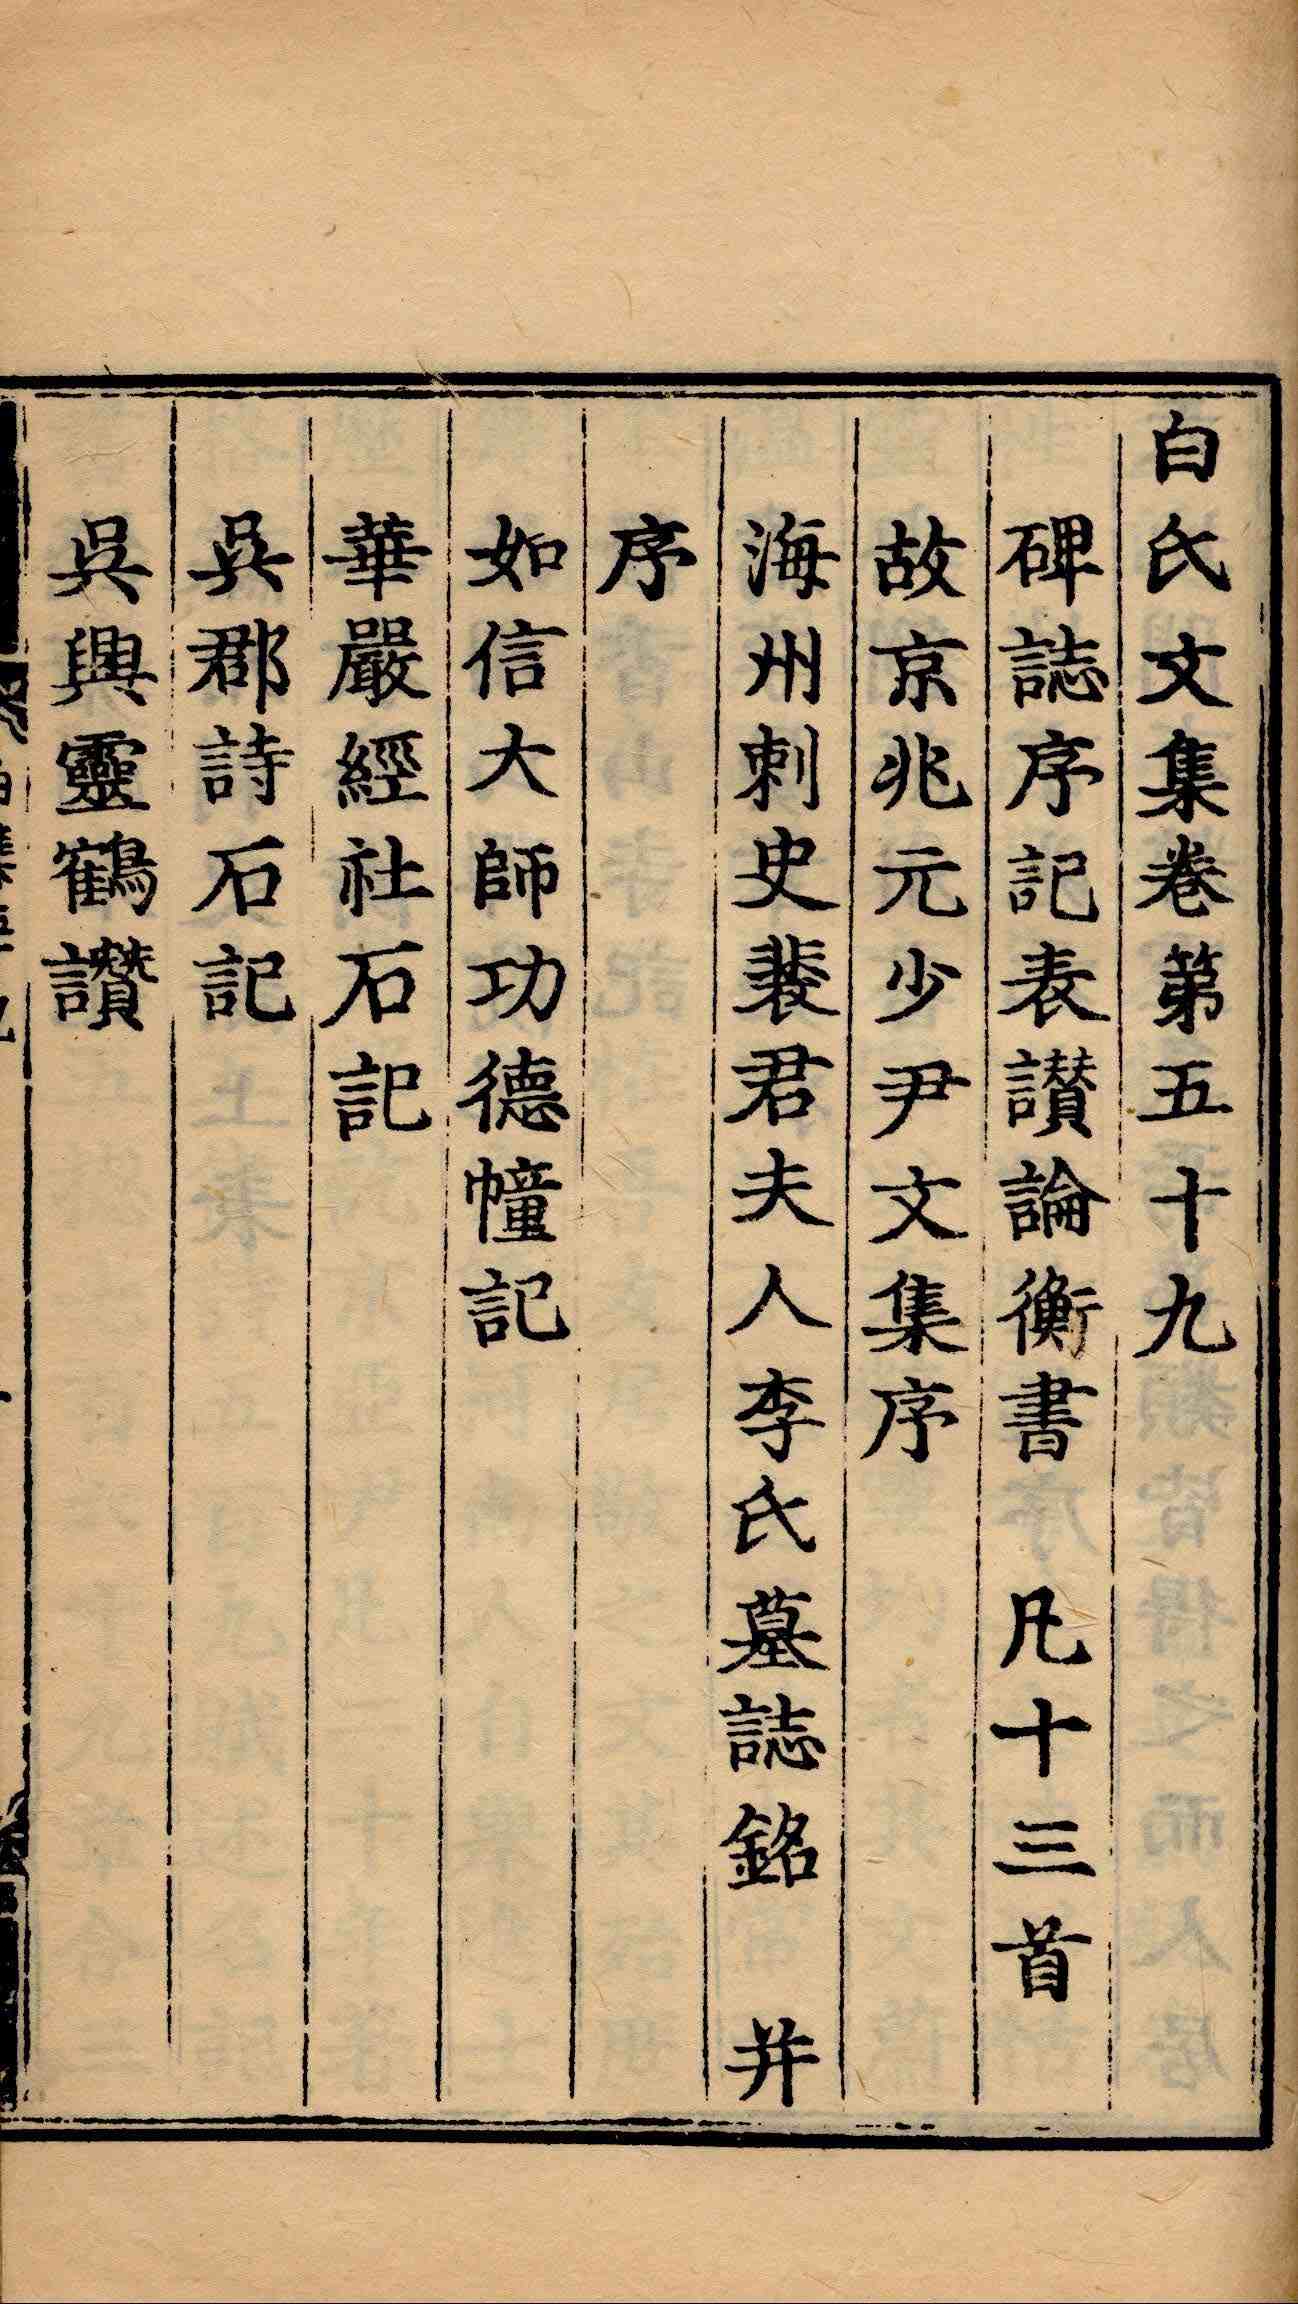 白氏文集卷第五十九
碑誌序記表讃論衡書　凡十三首
故京兆元少尹文集序
海州刺史裴君夫人李氏墓誌銘　并
序
如信大師功德幢記
華嚴經社石記
吳郡詩石記
吳興靈鶴讚